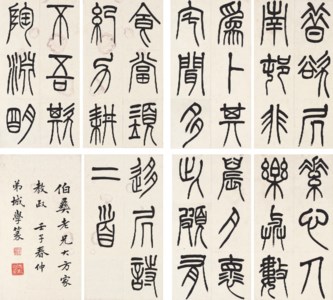 昔欲居
南邨非
為卜其
宅聞多
食當須
紀力耕
不吾欺
陶淵明
素心人
樂與數
晨夕懷
此頗有
移居詩
二首
伯彝老兄大方家
教政 壬子春仲
弟城學篆